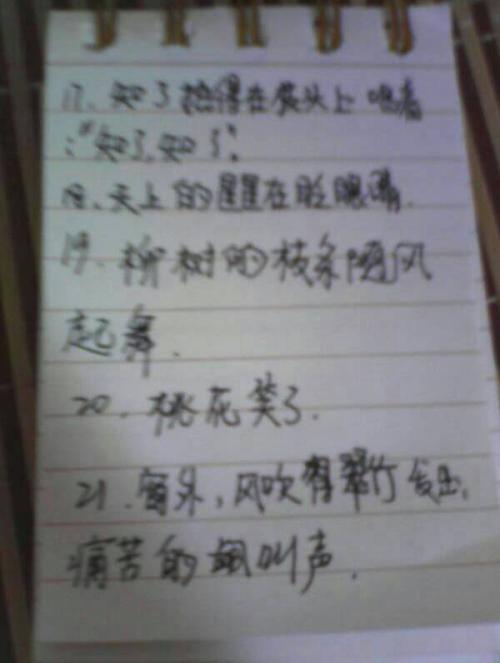 17、知了热得在枝头上唱着
:"知了,知了"。
18、天上的星星在眨眼睛.
19、柳树的枝条随风
起舞.
20、桃花笑了.
21、窗外,风吹着翠竹发出
痛苦的叫声.